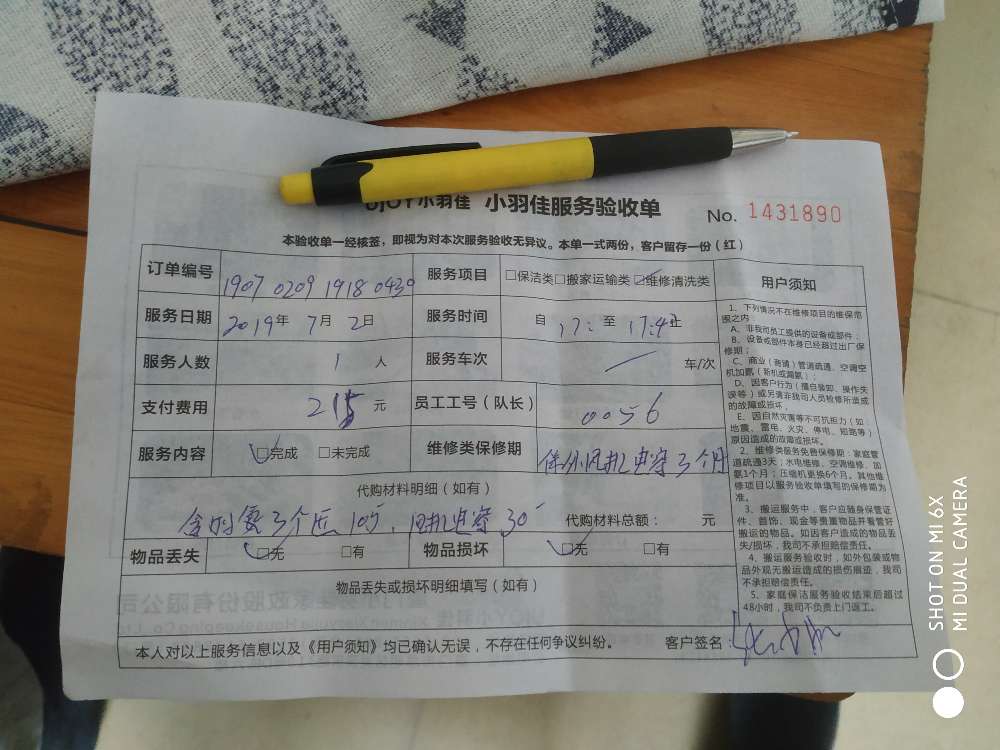 小羽佳 小羽佳服务验收单 No. 1431890
本验收单一经核签，即视为对本次服务验收无异议。本单一式两份，客户留存一份（红）
订单编号 1907 0209 1918 0430 服务项目 □保洁类□搬家运输类□维修清洗类
服务日期 2019年 7月 2日 服务时间 自 17: 至 17:4 止
服务人数 1 人 服务车次 车/次
支付费用 215 元 员工工号（队长） 0056
服务内容 □完成 □未完成 维修类保修期 风机电容3个月
代购材料明细（如有）
3个 105，电容 30 代购材料总额： 元
物品丢失 □无 □有 物品损坏 □无 □有
物品丢失或损坏明细填写（如有）
本人对以上服务信息以及《用户须知》均已确认无误，不存在任何争议纠纷。 客户签名：
用户须知
1、下列情况不在维修项目的维保范
围之内
A、非我司员工提供的设备或部件；
B、设备或部件本身已经超过出厂保
修期；
C、商业（商铺）管道疏通、空调空
机加氟（新机或漏氟）；
D、因客户行为（擅自装卸、操作失
误等）或另请非我司人员检修所造成
的故障或损坏，
E、因自然灾害等不可抗拒力（如：
地震、雷电、火灾、停电、短路等）
原因造成的故障或损坏。
2、维修类服务免费保修期：家庭管
道疏通3天；水电维修、空调维修、加
氟1个月；压缩机更换6个月。其他维
修项目以服务验收单填写的保修期为
准。
3、搬运服务中，客户应随身保管证
件、首饰、现金等贵重物品并看管好
搬运的物品。如因客户造成的物品丢
失/损坏，我司不承担赔偿责任。
4、搬运服务验收时，如外包装或物
品外观无搬运造成的损伤痕迹，我司
不承担赔偿责任。
5、家庭保洁服务验收结束后超过
48小时，我司不负责上门返工。
SHOT ON MI 6X
MI DUAL CAMERA